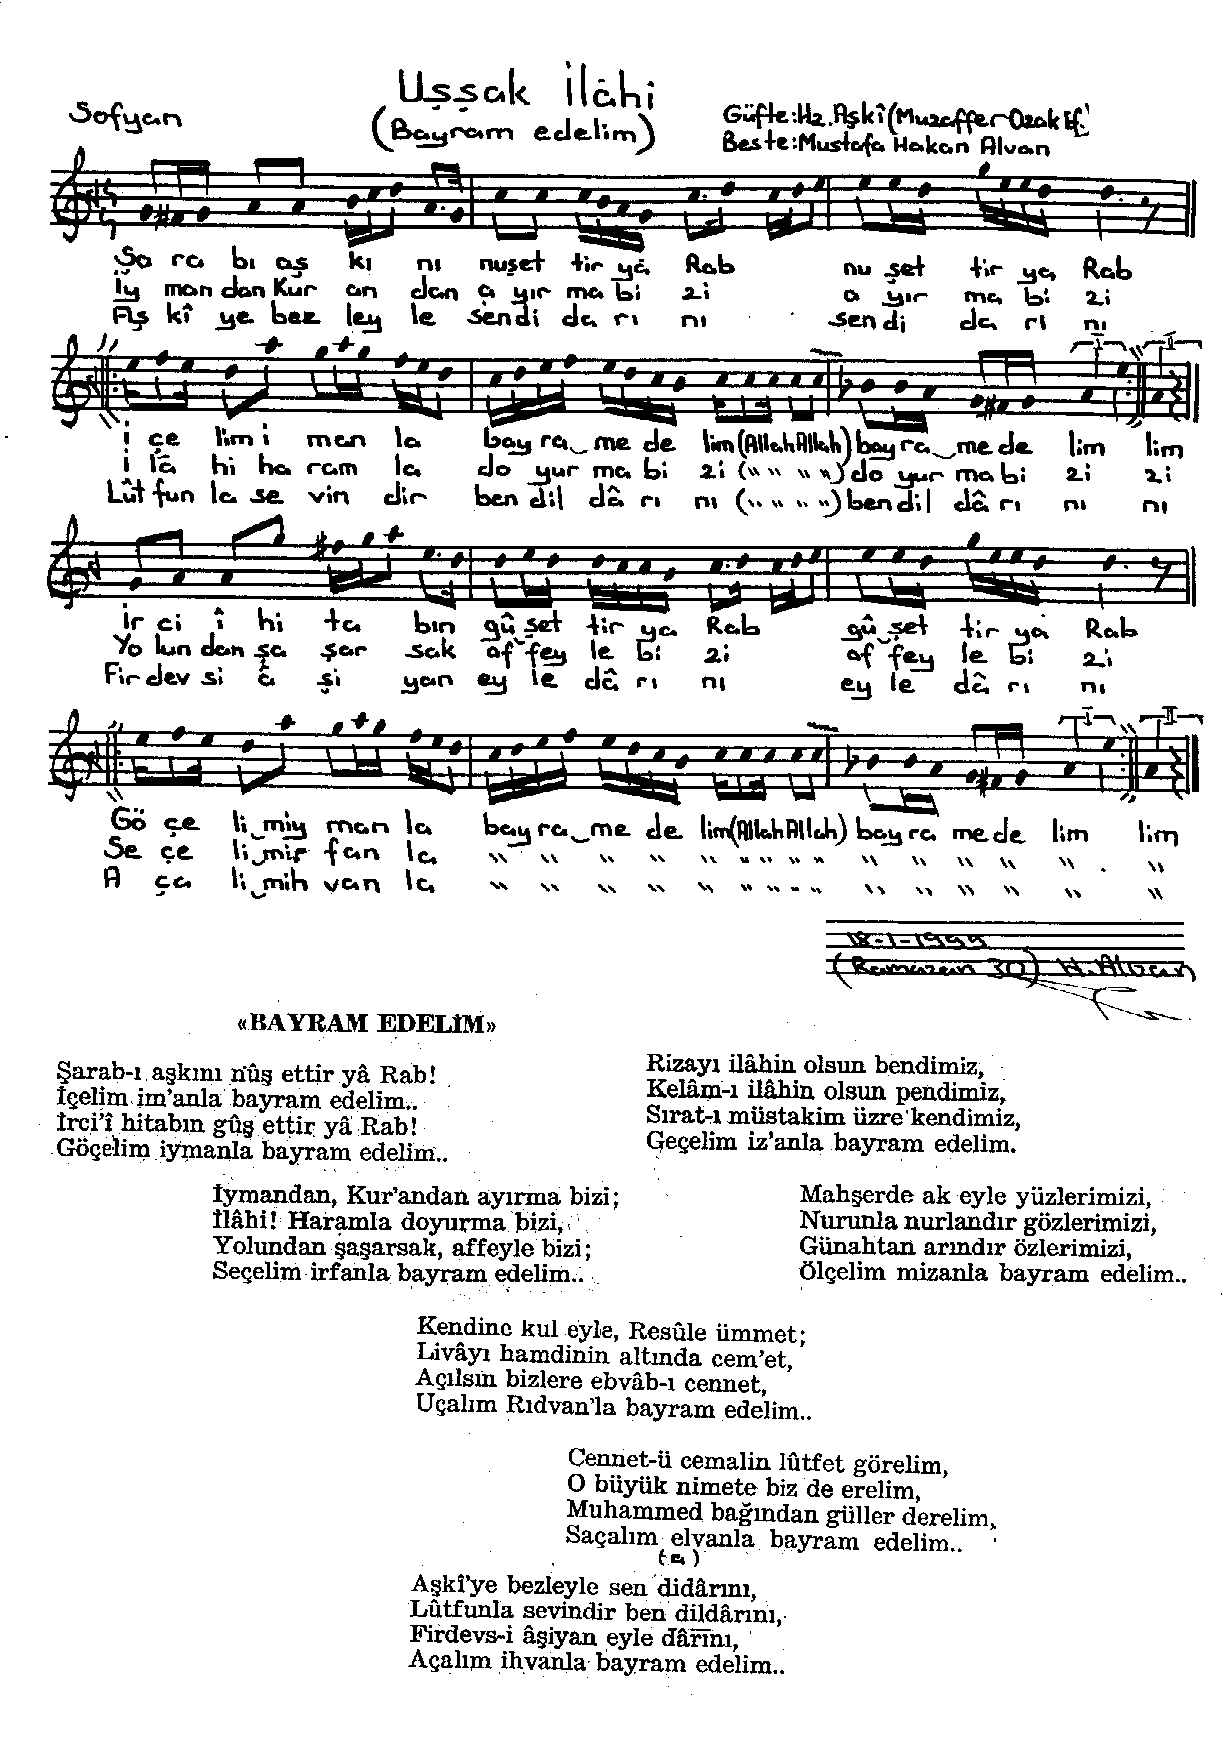 Uşşak İlâhi
Sofyan
(Bayram edelim)
Güfte: Hz. Aşkî (Muzaffer Ozak Ef.)
Beste: Mustafa Hakan Alvan
Şa ra bı aş kı nı nuşet tir yâ Rab nu şet tir ya Rab
İy man dan Kur an dan a yır ma bi zi a yır ma bi zi
Aş kî ye bez ley le sen di da rı nı sen di da rı nı
I II
İ çe lim i man la bay ra me de lim (Allah Allah) bay ra me de lim lim
İ lâ hi ha ram la do yur ma bi zi (" " " ") do yur ma bi zi zi
Lût fun la se vin dir ben dil dâ rı nı (" " " ") ben dil dâ rı nı nı
İr ci î hi ta bın gû şet tir ya Rab gû şet tir ya Rab
Yo lun dan şa şar sak af fey le bi zi af fey le bi zi
Fir dev si â şi yan ey le dâ rı nı ey le dâ rı nı
I II
Gö çe li miy man la bay ra me de lim (Allah Allah) bay ra me de lim lim
Se çe li mir fan la " " " " " " " " " " " " " "
A ça li mih van la " " " " " " " " " " " " " "
18-1-1999
(Ramazan 30) H. Alvan
«BAYRAM EDELİM»
Şarab-ı aşkını nûş ettir yâ Rab!
İçelim im'anla bayram edelim..
İrci'î hitabın gûş ettir yâ Rab!
Göçelim iymanla bayram edelim..
Rizayı ilâhin olsun bendimiz,
Kelâm-ı ilâhin olsun pendimiz,
Sırat-ı müstakim üzre kendimiz,
Geçelim iz'anla bayram edelim.
İymandan, Kur'andan ayırma bizi;
İlâhi! Haramla doyurma bizi,
Yolundan şaşarsak, affeyle bizi;
Seçelim irfanla bayram edelim..
Mahşerde ak eyle yüzlerimizi,
Nurunla nurlandır gözlerimizi,
Günahtan arındır özlerimizi,
Ölçelim mizanla bayram edelim..
Kendine kul eyle, Resûle ümmet;
Livâyı hamdinin altında cem'et,
Açılsın bizlere ebvâb-ı cennet,
Uçalım Rıdvan'la bayram edelim..
Cennet-ü cemalin lûtfet görelim,
O büyük nimete biz de erelim,
Muhammed bağından güller derelim,
Saçalım elvanla bayram edelim..
Aşkî'ye bezleyle sen didârını,
Lûtfunla sevindir ben dildârını,
Firdevs-i âşiyan eyle dârını,
Açalım ihvanla bayram edelim..